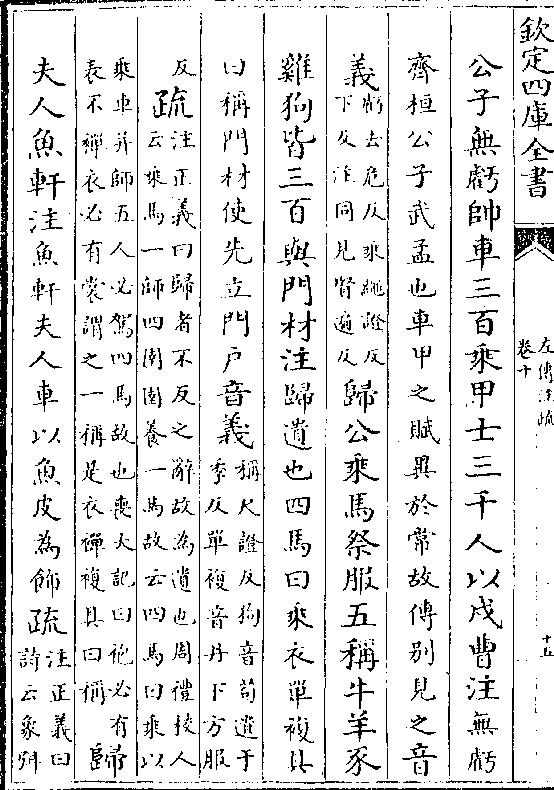 欽定四庫全書
左傳注疏
卷十
十五
公子無虧帥車三百乘甲士三千人以戍曹注無虧
齊桓公子武孟也車甲之賦異於常故傳別見之音
義虧去危反乘繩證反
下及注同見賢遍反歸公乘馬祭服五稱牛羊豕
雞狗皆三百與門材注歸遺也四馬曰乘衣單複具
曰稱門材使先立門戶音義稱尺證反狗音苟遺于
季反單複音丹下方服
反疏注正義曰歸者不反之辭故為遺也周禮校人
云乘馬一師四圉圉養一馬故云四馬曰乘以
乘車井師五人必駕四馬故也喪大記曰袍必有
表不襌衣必有裳謂之一稱是衣襌複具曰稱歸
夫人魚軒注魚軒夫人車以魚皮為飾疏注正義曰
詩云象弭